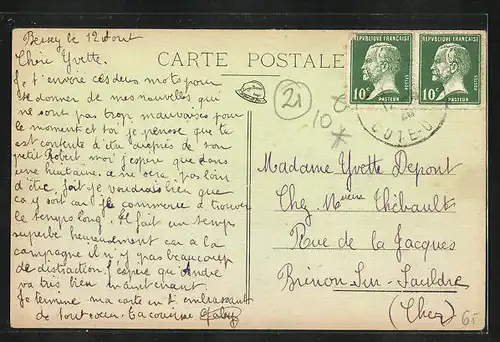 Bessey le 12 Aout
CARTE POSTALE
REPVBLIQUE FRANÇAISE
10c
POSTES
PASTEUR
REPVBLIQUE FRANÇAISE
10c
POSTES
PASTEUR
Chère Yvette.
Je t'envoie ces deux mots pour
te donner de mes nouvelles qui
ne sont pas trop mauvaises pour
le moment et toi je pense que tu est
contente d'être auprès de ton
petit Robert moi j'espère que dans
une huitaine je ne serai pas loin
d'être, soit je voudrais bien que
ca y soit car je commence à trouver
le temps long. Il fait un temps
superbe heureusement car a la
campagne il n'y pas beaucoup
de distraction j'espère que André
va très bien maintenant.
Je termine ma carte en t'embrassant
de tout coeur. Ta cousine Gaby
21
10
COTE-D
Madame Yvette Depont
Chez Mme Thébault
Rue de la Jacques
Brinon Sur Sauldre
(Cher)
65